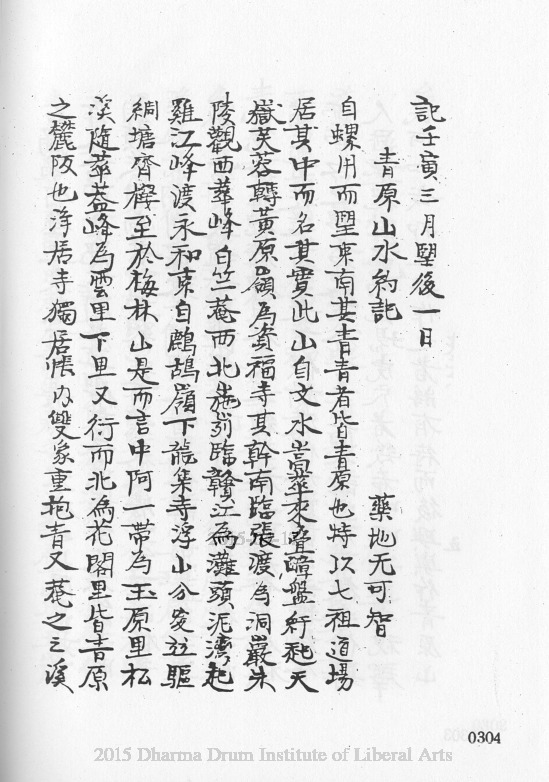 記壬寅三月望後一日
青原山水約記 藥地无可智
自螺川而望東南其青青者皆青原也特以七祖道場
居其中而名其實此山自文水嵩華來疊嶂盤紆起天
嶽芙蓉轉黃原嶺為資福寺其幹南臨張渡為洞巖朱
陵觀西華峰白竺菴西北拖引臨贛江為灘頭泥灣起
雞江峰渡永和東自鷓鴣嶺下龍集寺浮山分支並驅
綢塘齊樨至於梅林山是而言中阿一帶為玉原里松
溪隨華蓋峰為雲里下里又衍而北為花閣里皆青原
之麓阪也淨居寺獨居帳內雙象重抱青又菴之三溪
0304
2015 Dharma Drum Institute of Liberal Arts